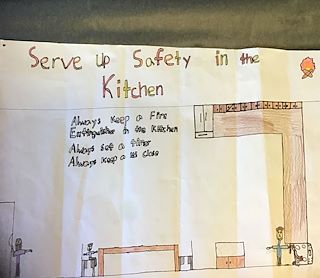 Serve up Safety in the
Kitchen
Always keep a Fire
Extinguisher in the kitchen
Always set a timer
Always keep a lid close